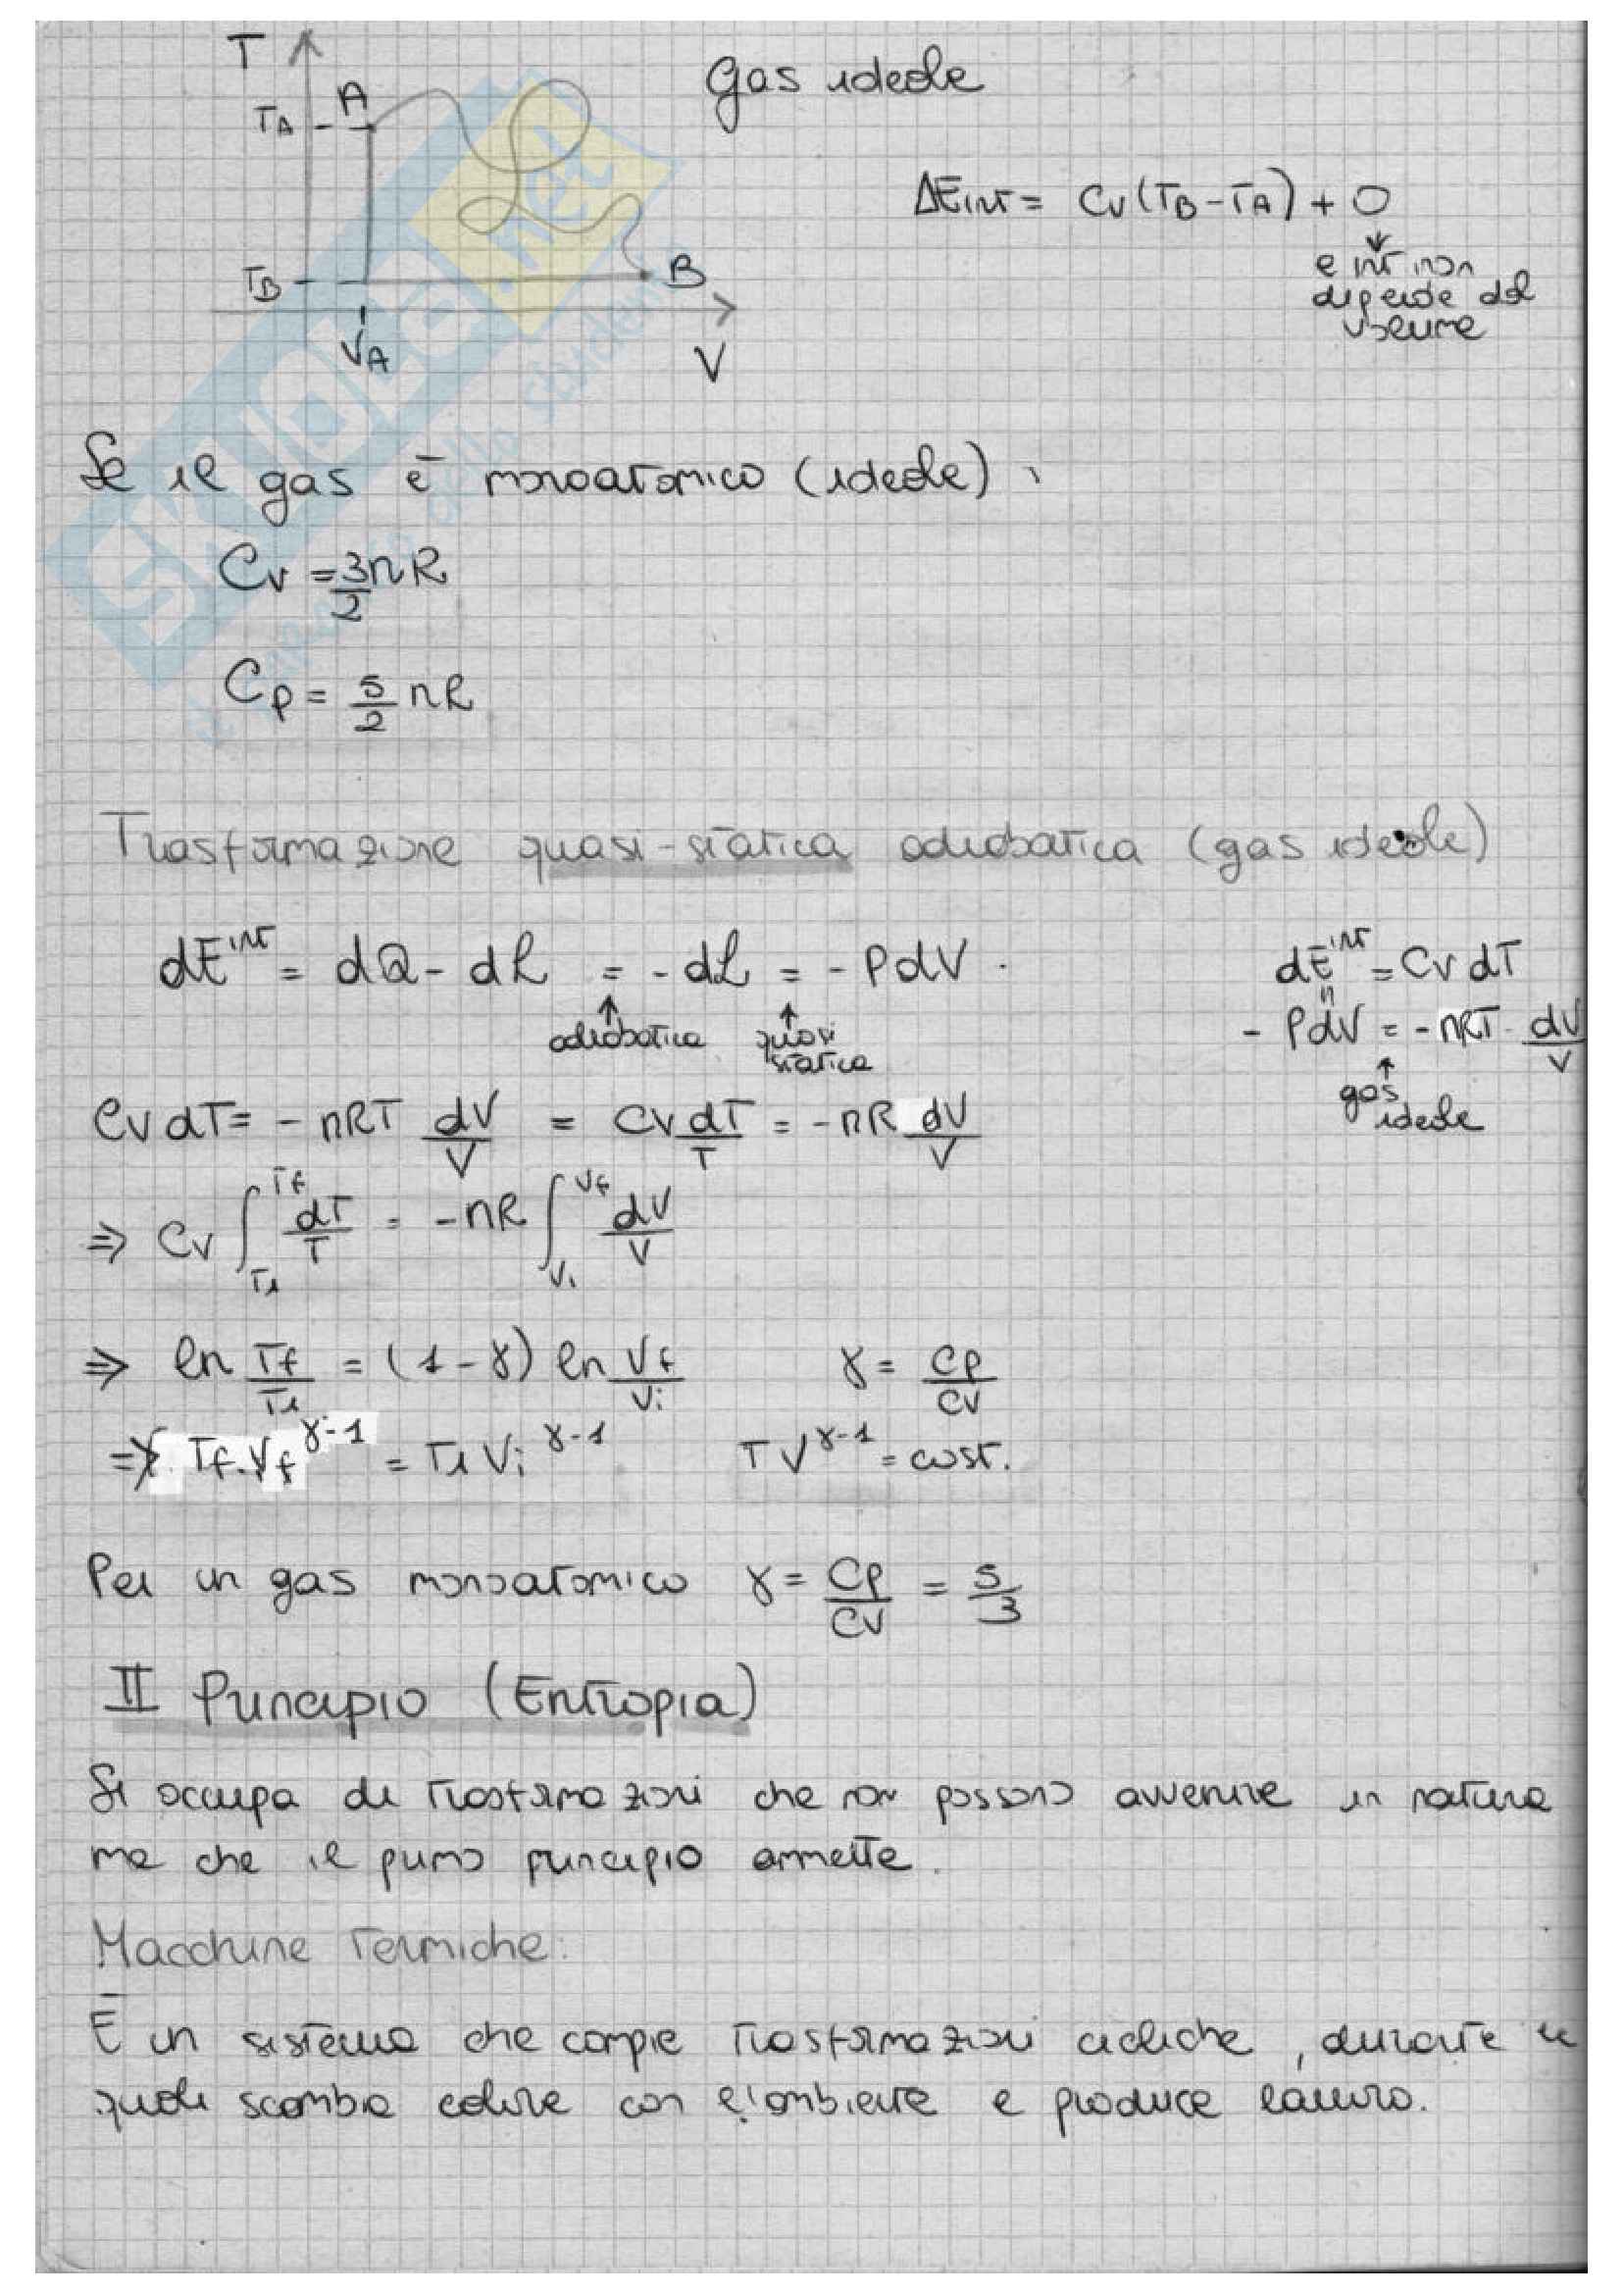 T
Gas ideale
TA
A
ΔEint = Cv(TB-TA) + 0
e int non
dipende dal
volume
TB
B
VA
V
SKUOLA.net
Se il gas è monoatomico (ideale):
Cv = 3/2 nR
Cp = 5/2 nR
Trasformazione quasi-statica adiabatica (gas ideale)
dE^int = dQ - dL = - dL = - PdV.
adiabatica quasi statica
dE^int = Cv dT
- PdV = - nRT dV/V
gas ideale
Cv dT = - nRT dV/V = Cv dT/T = - nR dV/V
⇒ Cv ∫_Ti^Tf dT/T = - nR ∫_Vi^Vf dV/V
⇒ ln Tf/Ti = (1-γ) ln Vf/Vi γ = Cp/Cv
⇒ Tf·Vf^γ-1 = Ti Vi^γ-1 TV^γ-1 = cost.
Per un gas monoatomico γ = Cp/Cv = 5/3
II Principio (Entropia)
Si occupa di trasformazioni che non possono avvenire in natura
ma che il primo principio ammette.
Macchine Termiche:
È un sistema che compie trasformazioni cicliche, durante le
quali scambia calore con l'ambiente e produce lavoro.